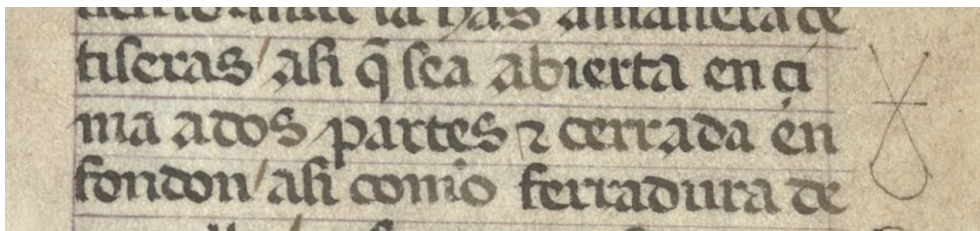 tiseras / asi q̃ sea abierta en çi
ma a dos partes ⁊ cerrada en
fondon / asi como ferradura de